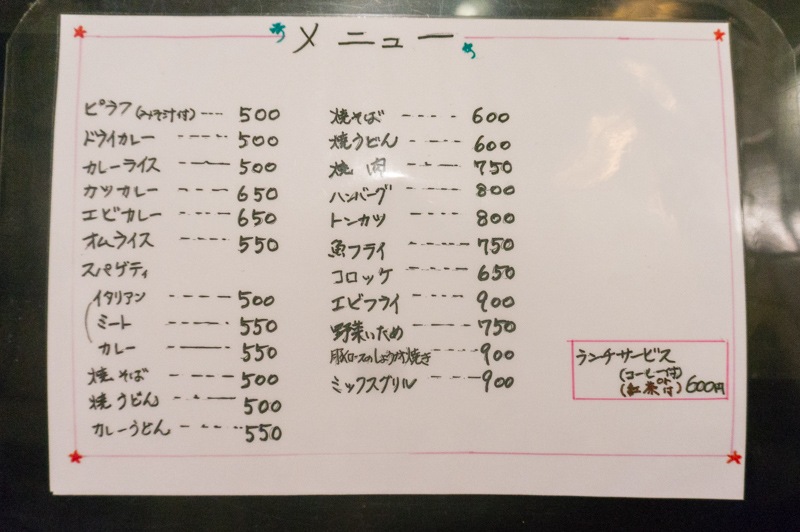 メニュー
ピラフ(みそ汁付) ---- 500
ドライカレー ----- 500
カレーライス ----- 500
カツカレー ----- 650
エビカレー ----- 650
オムライス ----- 550
スパゲティ
イタリアン ----- 500
ミート ----- 550
カレー ----- 550
焼そば ----- 500
焼うどん ----- 500
カレーうどん ----- 550
焼そば ----- 600
焼うどん ----- 600
焼肉 ----- 750
ハンバーグ ----- 800
トンカツ ----- 800
魚フライ ----- 750
コロッケ ----- 650
エビフライ ----- 900
野菜いため ----- 750
豚ロースのしょうが焼き ---- 900
ミックスグリル ----- 900
ランチサービス
(コーヒー付)
or
(紅茶付) 600円